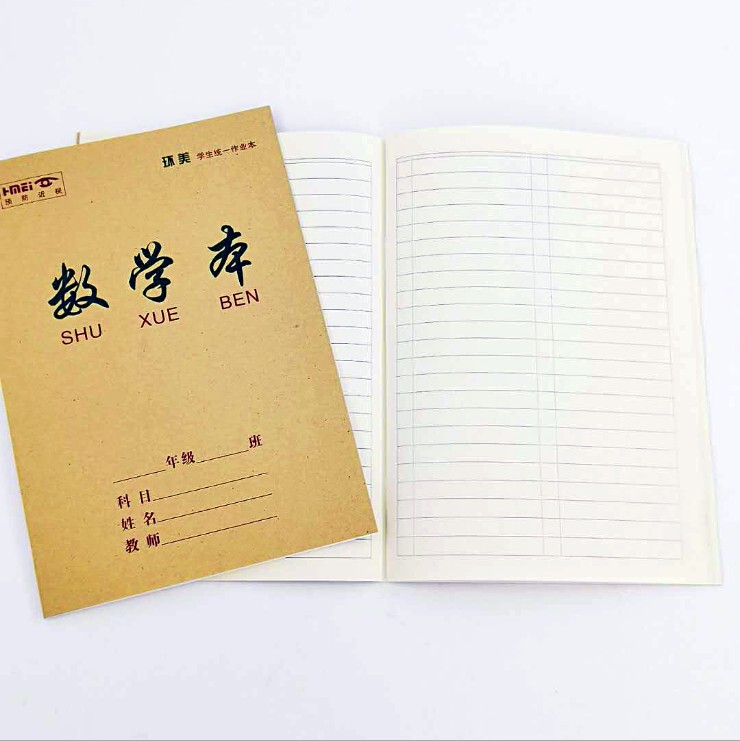 环美 学生统一作业本
HMEi
预防近视
数学本
SHU XUE BEN
年级 班
科目
姓名
教师